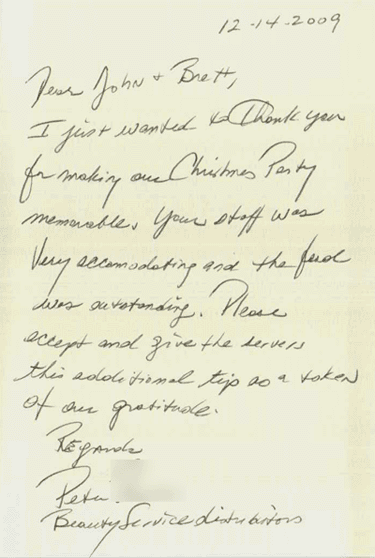 12-14-2009
Dear John & Brett,
I just wanted to Thank you
for making our Christmas Party
memorable. Your staff was
Very accomodating and the food
was outstanding. Please
accept and give the servers
this additional tip as a token
of our gratitude.
Regards
Peter
Beauty Service distributors